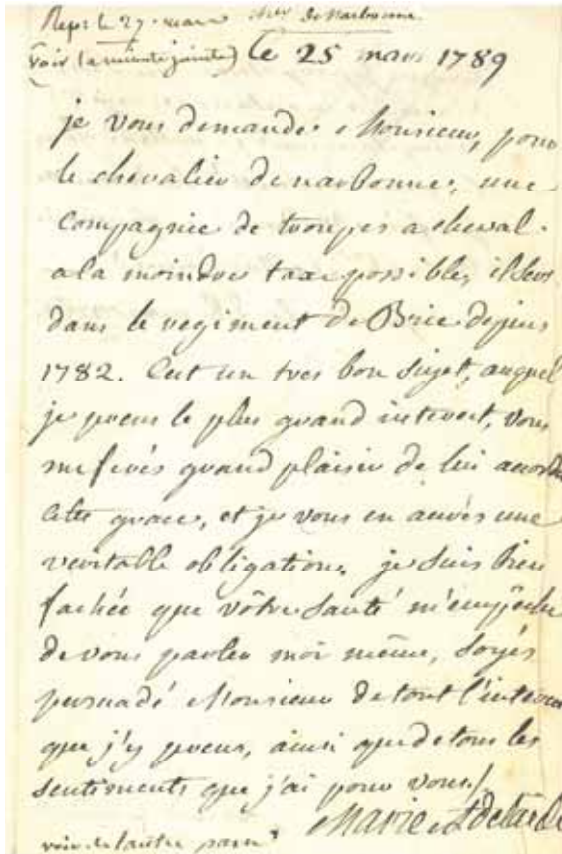 Repr le 27 mars cher de Narbonne.
(voir la minute jointe) le 25 mars 1789
je vous demande, Monsieur, pour
le chevalier de narbonne, une
compagnie de troupes a cheval.
a la moindre taxe possible, il sert
dans le regiment de Brie depuis
1782. C'est un tres bon sujet, auquel
je prens le plus grand interest, vous
me ferés grand plaisir de lui accorder
cette grace, et je vous en aurés une
veritable obligation. je suis bien
fachée que vôtre santé m'empêche
de vous parler moi même, soyés
persuadé Monsieur de tout l'interest
que j'y prens, ainsi que de tous les
sentiments que j'ai pour vous./.
Marie Adelaide
voir de l'autre part